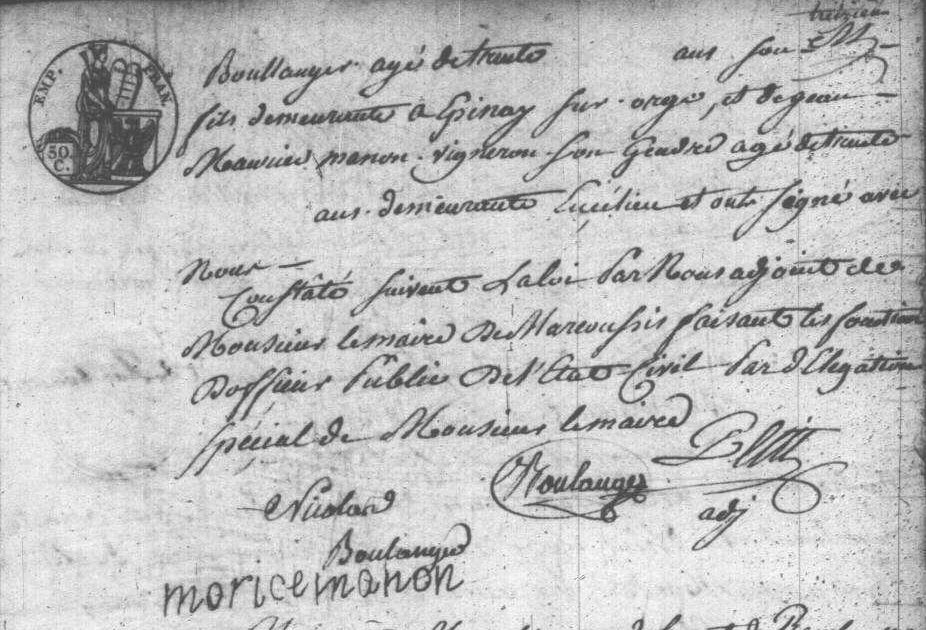 EMP. FRAN.
50 C.
Boullanger agé de trente ans son
fils demeurante a Epinay sur orge, et de jean
Maurice manon vigneron son Gendre agé de trente
ans demeurante Eusélieu et ont segné avec
Nous
Constâté suivent Laloi Par Nous adjoint de
Monsieur lemaire De Marcoussis faisant les fonction
Dofficier Public De l'Etat Civil Par délégation
spécial de Monsieur lemaire
Petit
Boulanger
adj
Nicolas
Boulanger
morice manon